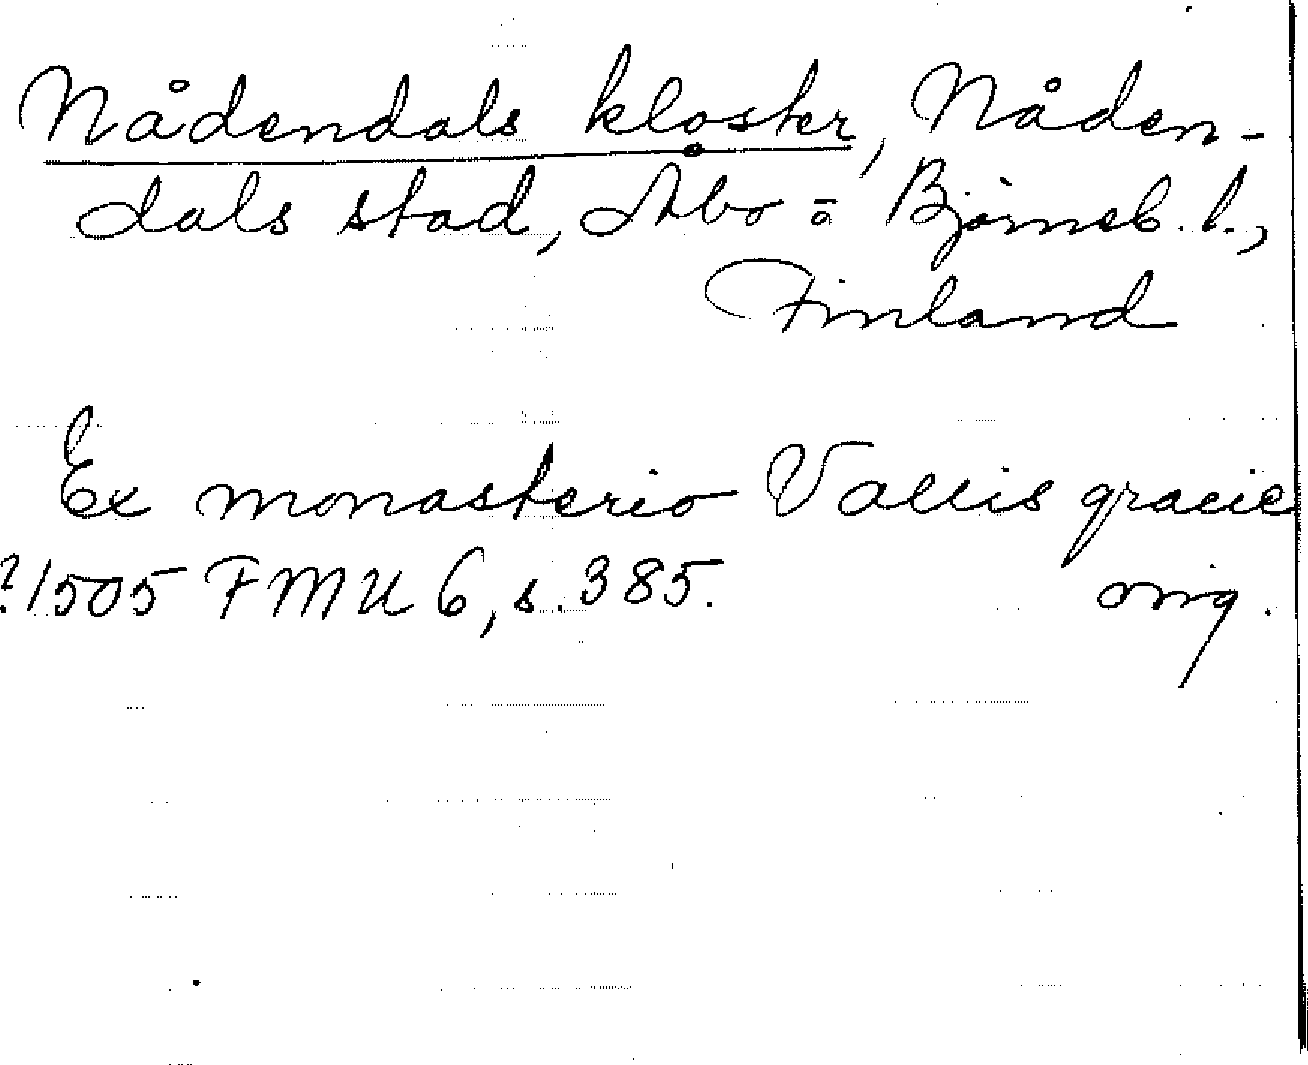 Nådendals kloster, Nåden-
dals stad, Åbo = Björneb. l.,
Finland
Ex monasterio Vallis gracie
?1505 FMU 6, s. 385. orig.